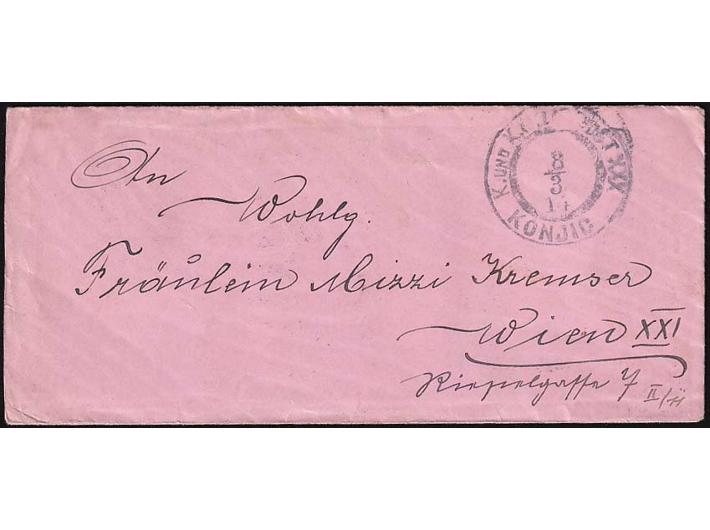 K. UND K.
XXX
8/3
KONJIC
An
Wohlg.
Fräulein Mizzi Kremser
Wien XXI
7
II/11